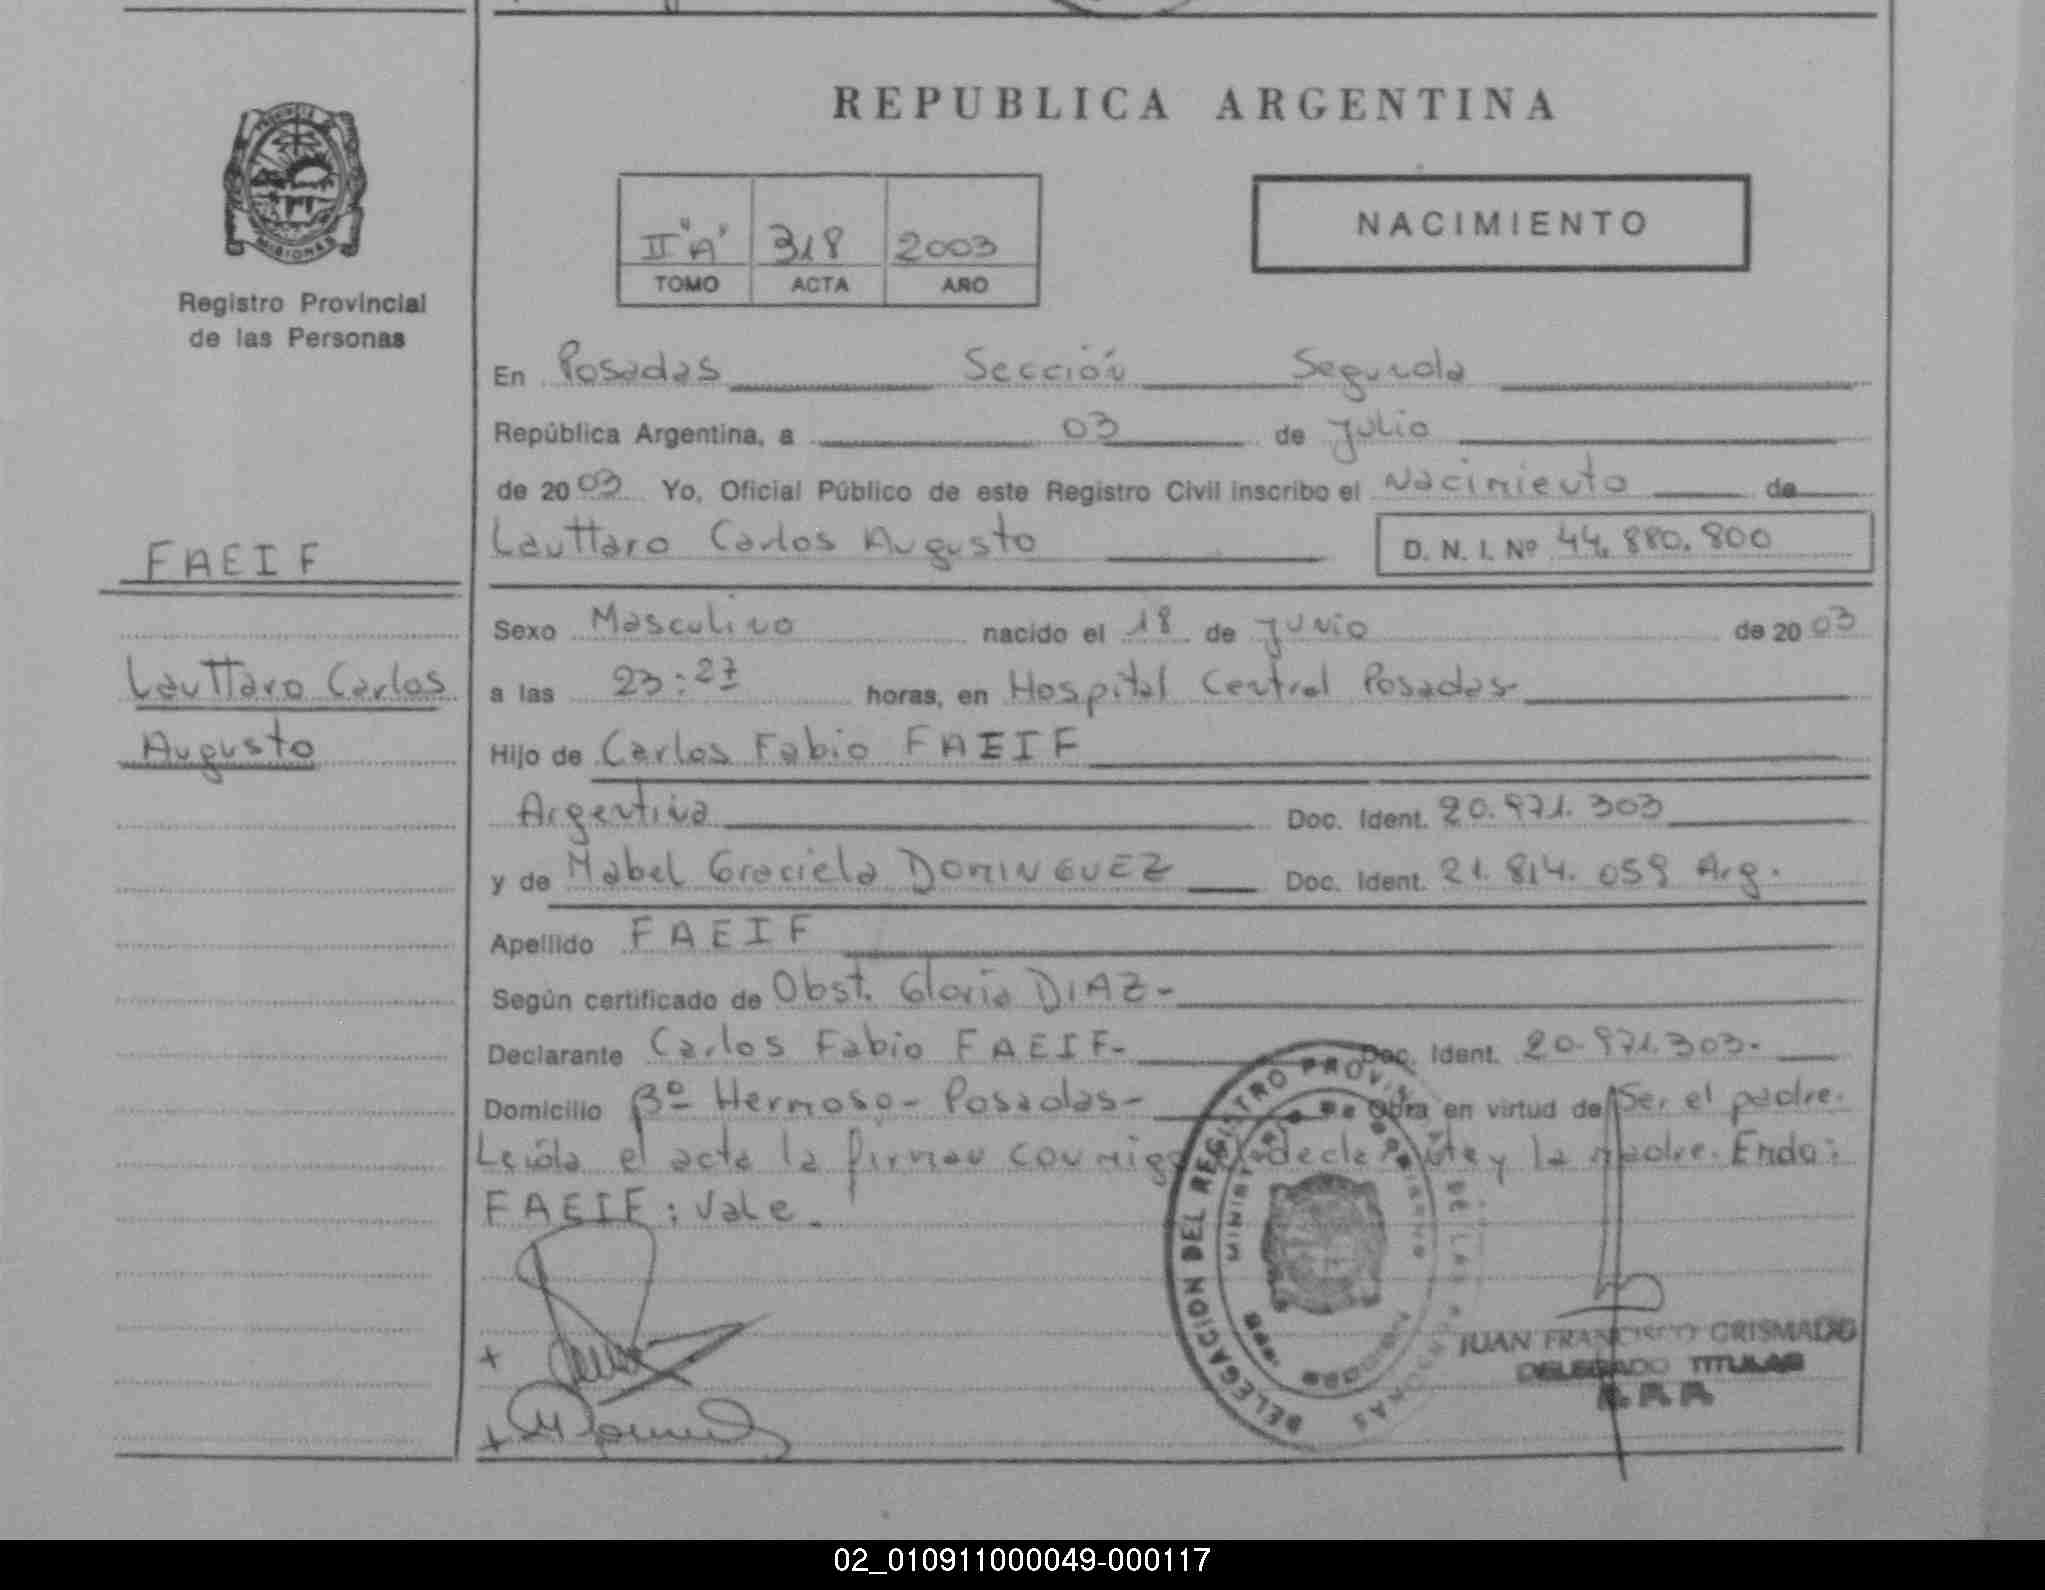 REPUBLICA ARGENTINA
PROVINCIA
MISIONES
Registro Provincial
de las Personas
II "A" 318 2003
TOMO ACTA AÑO
NACIMIENTO
En Posadas Sección Segunda
República Argentina, a 03 de Julio
de 2003 Yo, Oficial Público de este Registro Civil inscribo el Nacimiento de
Lauttaro Carlos Augusto D. N. I. Nº 44.880.800
FAEIF
Lauttaro Carlos
Augusto
Sexo Masculino nacido el 18 de Junio de 2003
a las 23:27 horas, en Hospital Central Posadas-
Hijo de Carlos Fabio FAEIF
Argentina Doc. Ident. 20.971.303
y de Mabel Graciela DOMINGUEZ Doc. Ident. 21.814.059 Arg.
Apellido FAEIF
Según certificado de Obst. Gloria DIAZ-
Declarante Carlos Fabio FAEIF- Doc. Ident. 20.971.303-
Domicilio Bº Hermoso- Posadas- Obra en virtud de Ser el padre.
Leída el acta la firman conmigo el declarante y la madre. Enda:
FAEIF: Vale.
DELEGACION DEL REGISTRO PROVINCIAL DE LAS PERSONAS
MINISTERIO DE GOBIERNO
JUAN FRANCISCO CRISMADO
DELEGADO TITULAR
R.P.P.
02_010911000049-000117